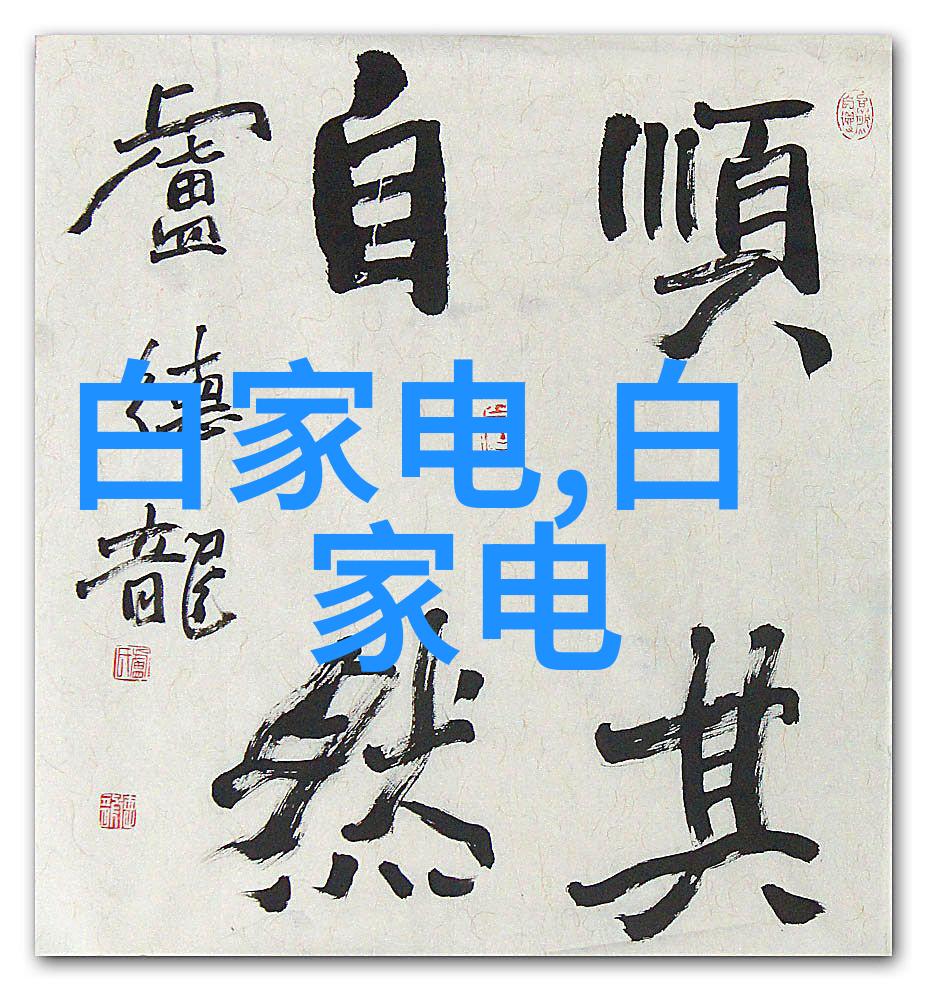 順其
自然
盧德龍
白家电,白
家电